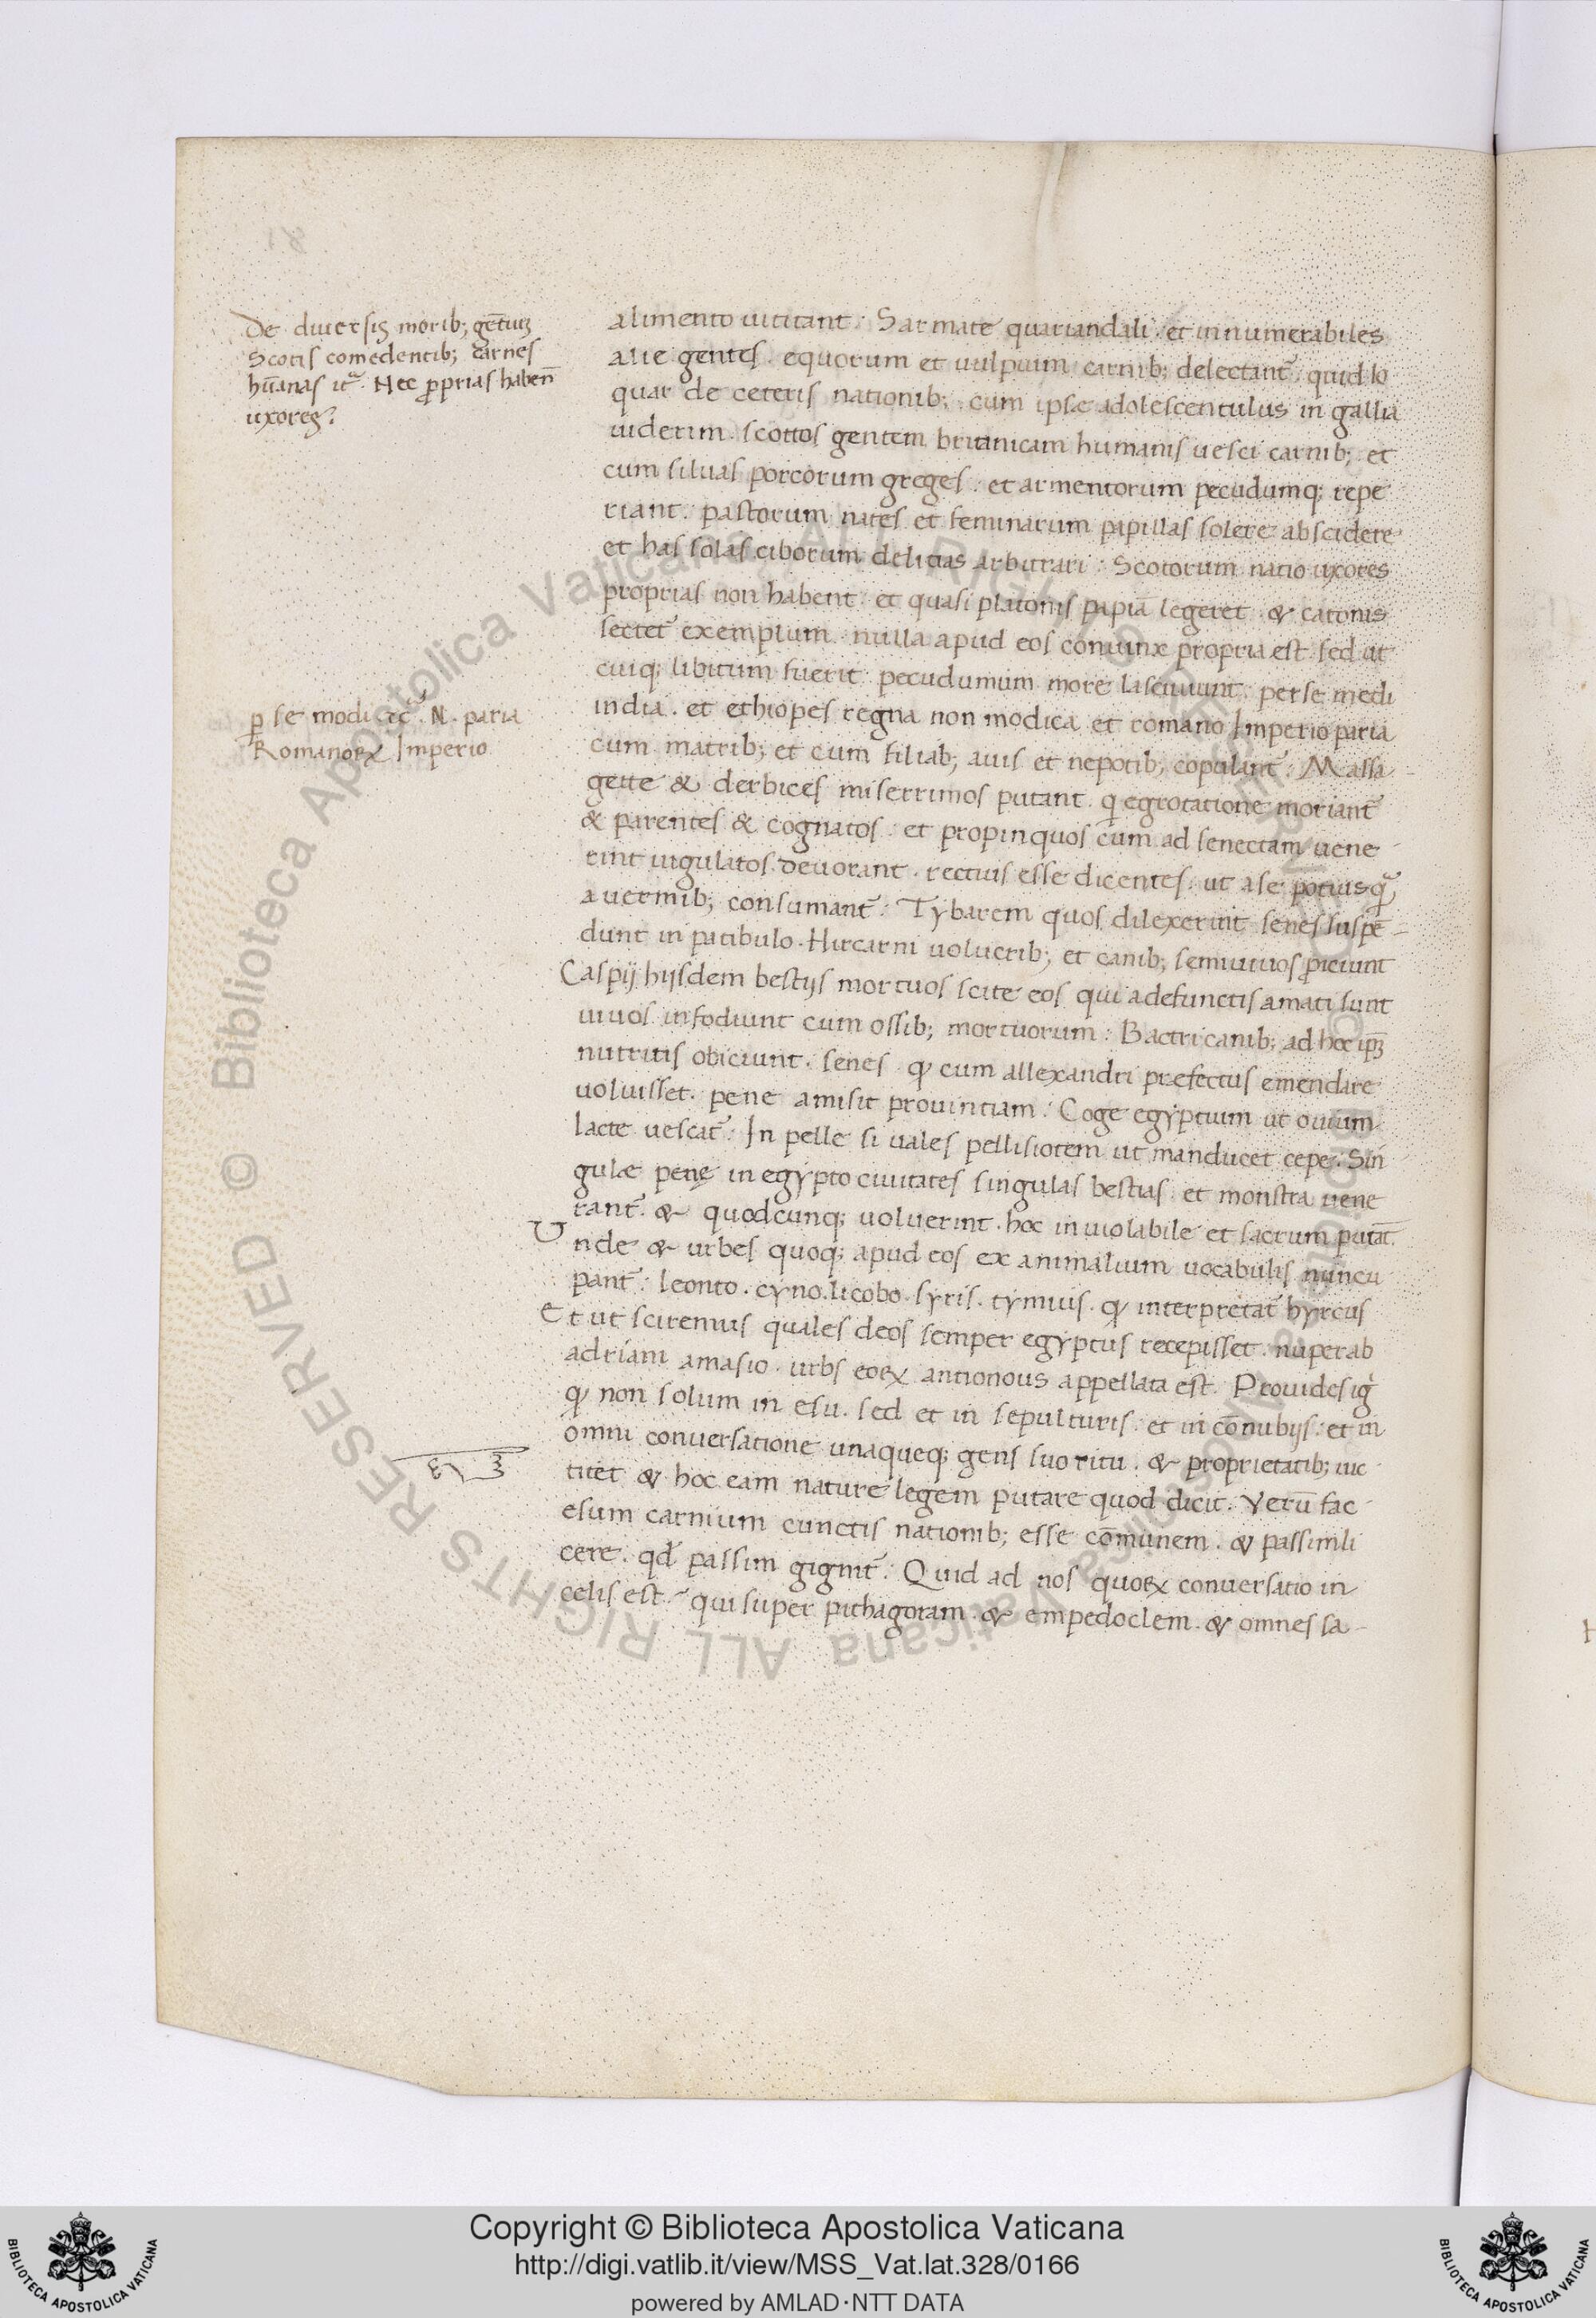 De diuersis morib; gētiuꝫ
Scotis comedentib; carnes
hūanas itᵃ. Nec ꝓprias habēn
uxores?
alimento uititant. Sarmate quariandali. et innumerabiles
alie gentes. equorum et uulpium carnib; delectant̃. quid lo
quar de ceteris nationib;. cum ipse adolescentulus in gallia
uiderim. scottos gentem britanicam humanis uesci carnib;. et
cum siluas porcorum greges. et armentorum pecudumq; repe
riant. pastorum nates et feminarum papillas solere abscidere
et has solas ciborum delicias arbitrari. Scotorum natio uxores
proprias non habent. et quasi platonis papiā legeret. & catonis
sectet̃ exemplum. nulla apud eos coniunx propria est. sed ut
cuiq; libitum fuerit. pecudumum more lasciuiunt. perse medi
india. et ethiopes regna non modica et romano Imperio paria
ꝑ se modi etc̃. N. paria
Romanoꝝ Imperio
cum matrib; et cum filiab; auis et nepotib; copulant̃. Massa
gette & derbices miserrimos putant. qͥ egrotatione moriant̃
& parentes & cognatos. et propinquos cum ad senectam uene
rint uigulatos deuorant. rectius esse dicentes. ut a se potius qᷓ
a uermib; consumant̃. Tybarem quos dilexerint senes suspē
dunt in patibulo. Hircarni uolucrib; et canib; semiuiuos ꝓiciunt
Caspij hijsdem bestijs mortuos scite eos qui a defunctis amati sunt
uiuos infodiunt cum ossib; mortuorum. Bactri canib; ad hoc ipꝫ
nutritis obiciunt. senes qͦ cum allexandri prefectus emendare
uoluisset. pene amisit prouintiam. Coge egyptium ut ouium
lacte uescat̃. In pelle si uales pellisiotem ut manducet cepe. Sin
gulæ penę in egypto ciuitates singulas bestias. et monstra uene
rant̃. & quodcunq; uoluerint. hoc inuiolabile et sacrum putāt.
Unde & urbes quoq; apud eos ex animalium uocabulis nuncu
pant̃. leonto. cyno. licobo. syris. tymuis. qͦ interpretat̃ hyrcus
Et ut sciremus quales deos semper egyptus recepisset. nuper ab
adriani amasio. urbs eoꝝ antionous appellata est. Prouides igͥ
qͦ non solum in esu. sed et in sepulturis. et in cōnubijs. et in
omni conuersatione unaqueq; gens suo ritu. & proprietatib; iuc
titet & hoc eam nature legem putare quod dicit. Verū fac
esum carnium cunctis nationib; esse cōmunem. & passim li
cere. qd̃ passim gignit̃. Quid ad nos quoꝝ conuersatio in
celis est. qui super pithagoram. & empedoclem. & omnes sa
© Biblioteca Apostolica Vaticana ALL RIGHTS RESERVED
Copyright © Biblioteca Apostolica Vaticana
http://digi.vatlib.it/view/MSS_Vat.lat.328/0166
powered by AMLAD·NTT DATA
BIBLIOTECA APOSTOLICA VATICANA
BIBLIOTECA APOSTOLICA VATICANA